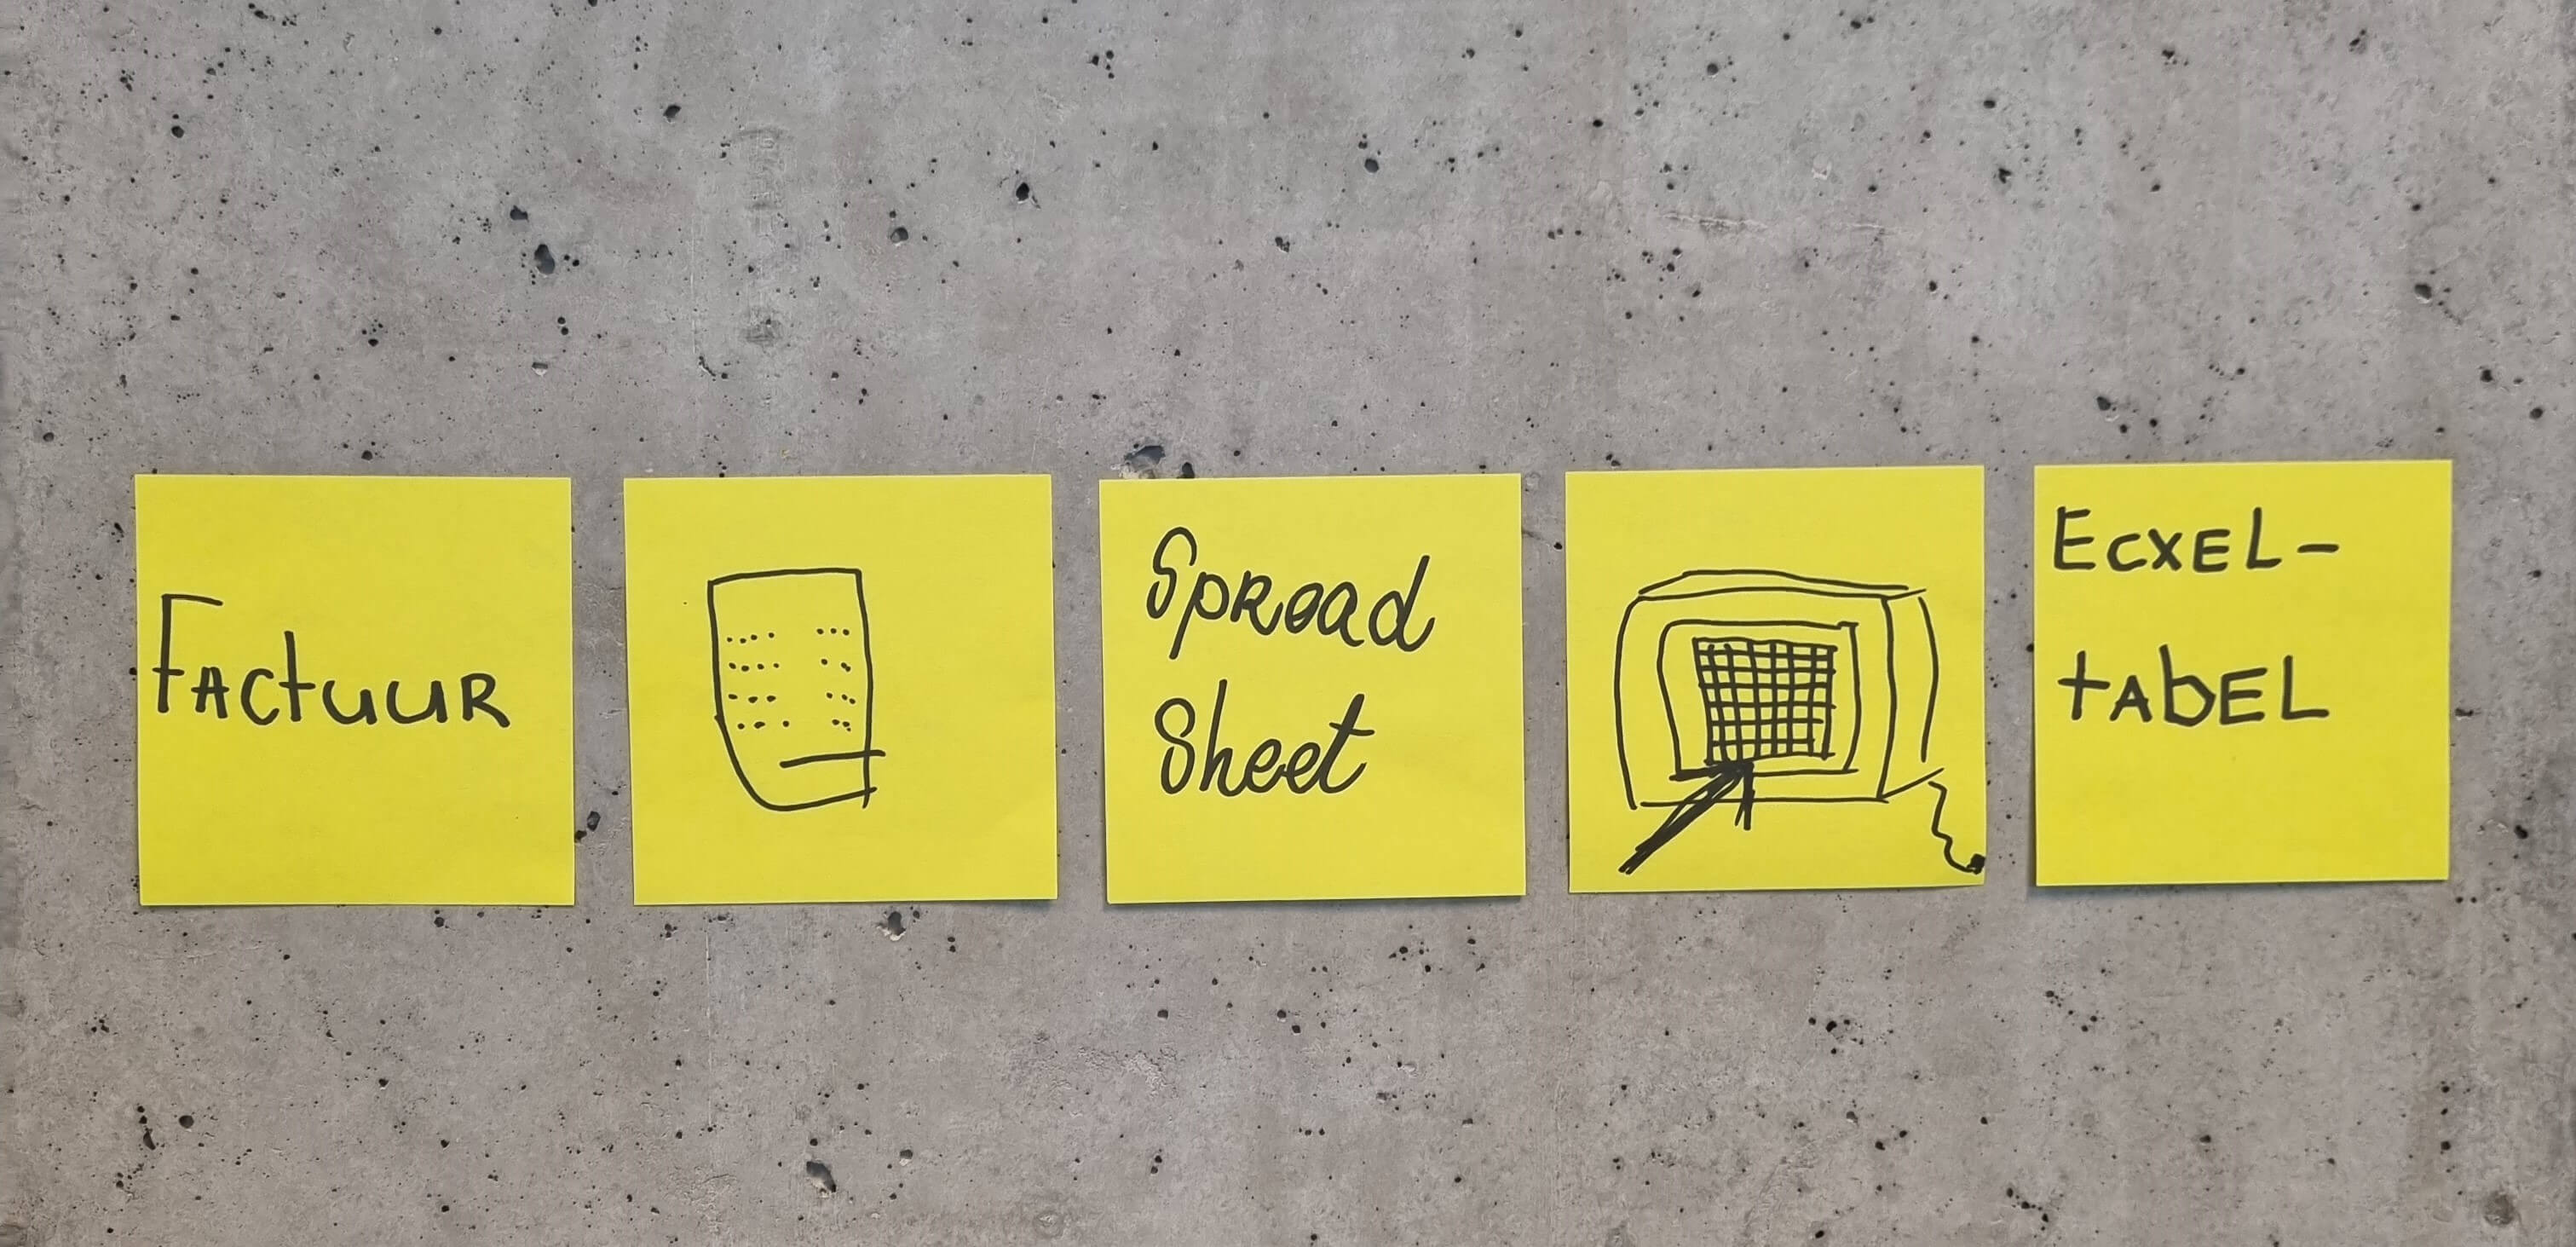 Factuur
Spread
Sheet
Ecxel-
tabel